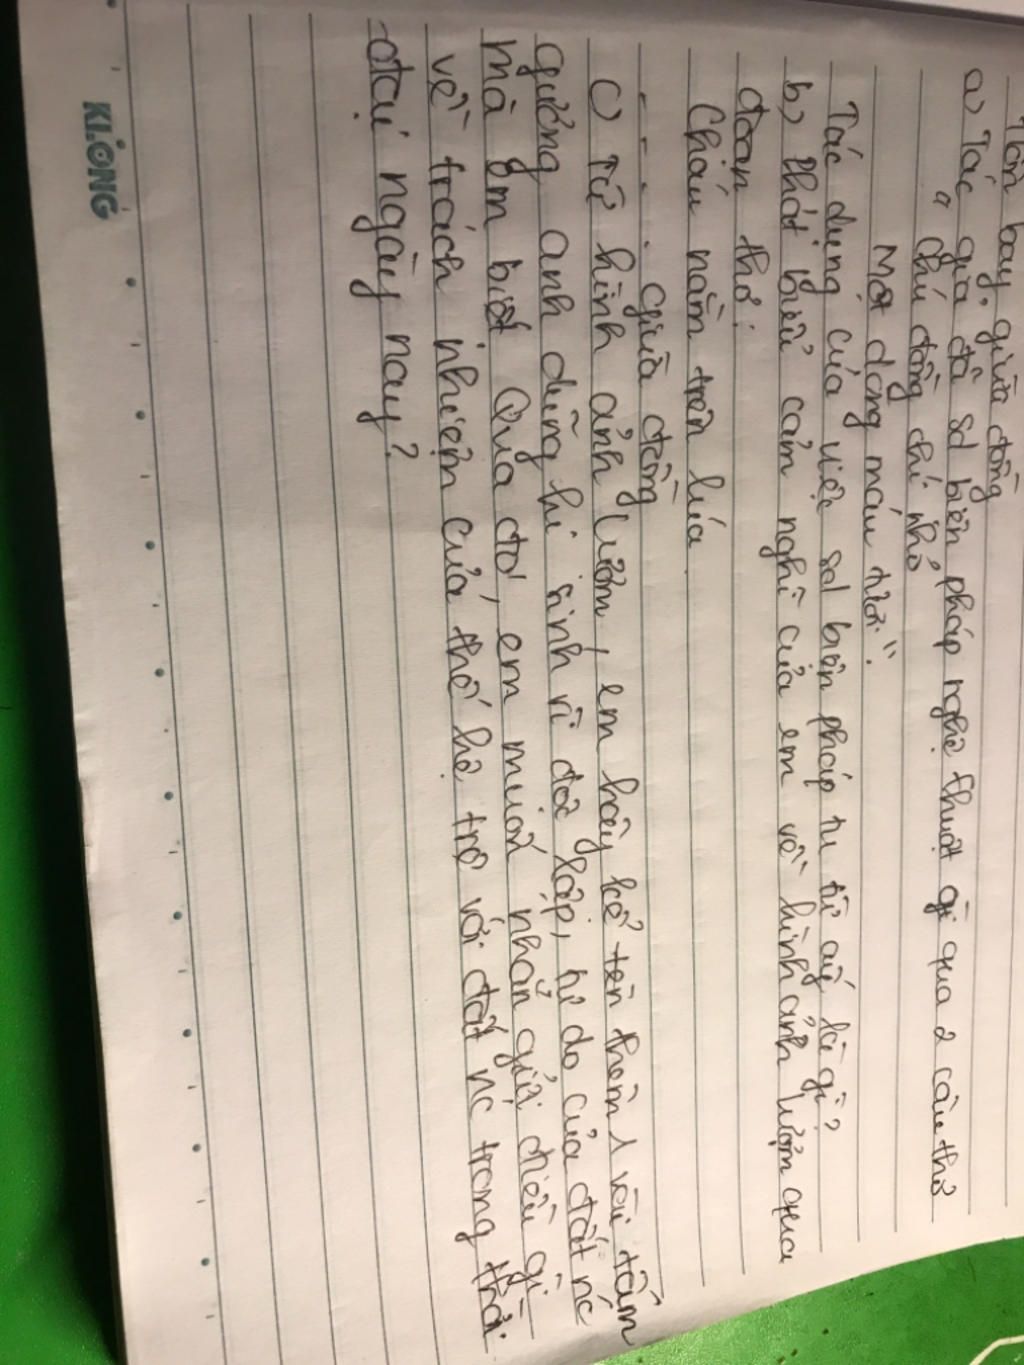 Hồn bay giữa đồng
a) Tác giả đã sd biện pháp nghệ thuật gì qua 2 câu thơ
" Chú đồng chí nhỏ
Một dòng máu tươi".
Tác dụng của việc sd biện pháp tu từ ấy là gì?
b) Phát biểu cảm nghĩ của em về hình ảnh Lượm qua
đoạn thơ:
Cháu nằm trên lúa
- - - - Giữa đồng
c) Từ hình ảnh Lượm, em hãy kể tên thêm 1 vài tấm
gương anh dũng hi sinh vì độc lập, tự do của đất nc
mà em biết. Qua đó, em muốn nhắn gửi điều gì
về trách nhiệm của thế hệ trẻ với đất nc trong thời
đại ngày nay?
KLONG